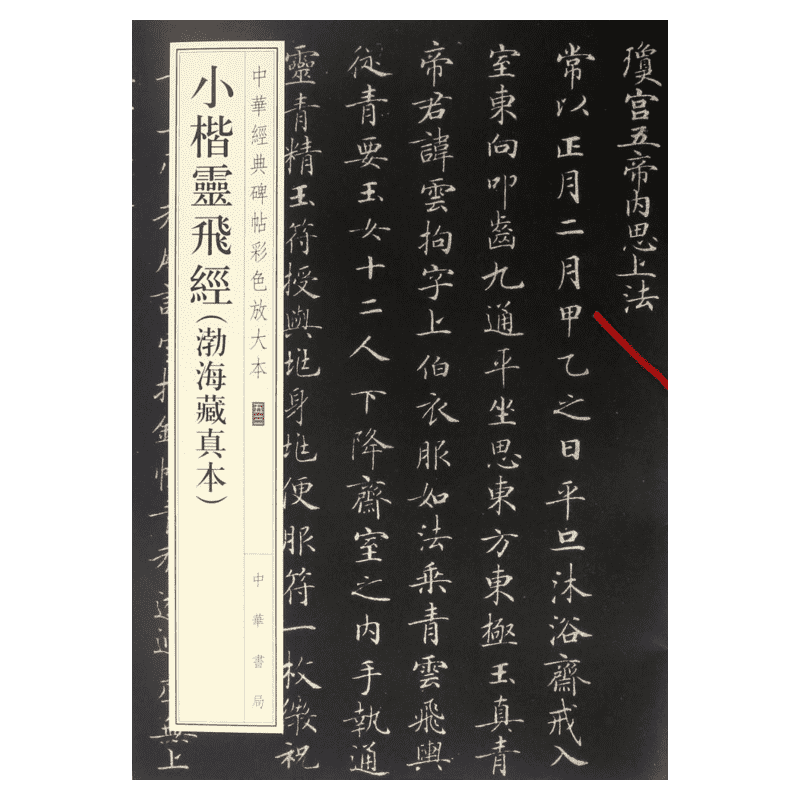 瓊宫五帝内思上法
常以正月二月甲乙之日平旦沐浴齋戒入
室東向叩齒九通平坐思東方東極玉真青
帝君諱雲拘字上伯衣服如法乘青雲飛輿
從青要玉女十二人下降齋室之内手執通
靈青精玉符授與兆身兆便服符一枚微祝
中華經典碑帖彩色放大本
中華書局
小楷靈飛經（渤海藏真本）